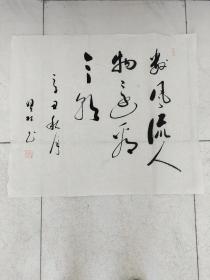 数风流人
物还看
今朝
辛丑秋月